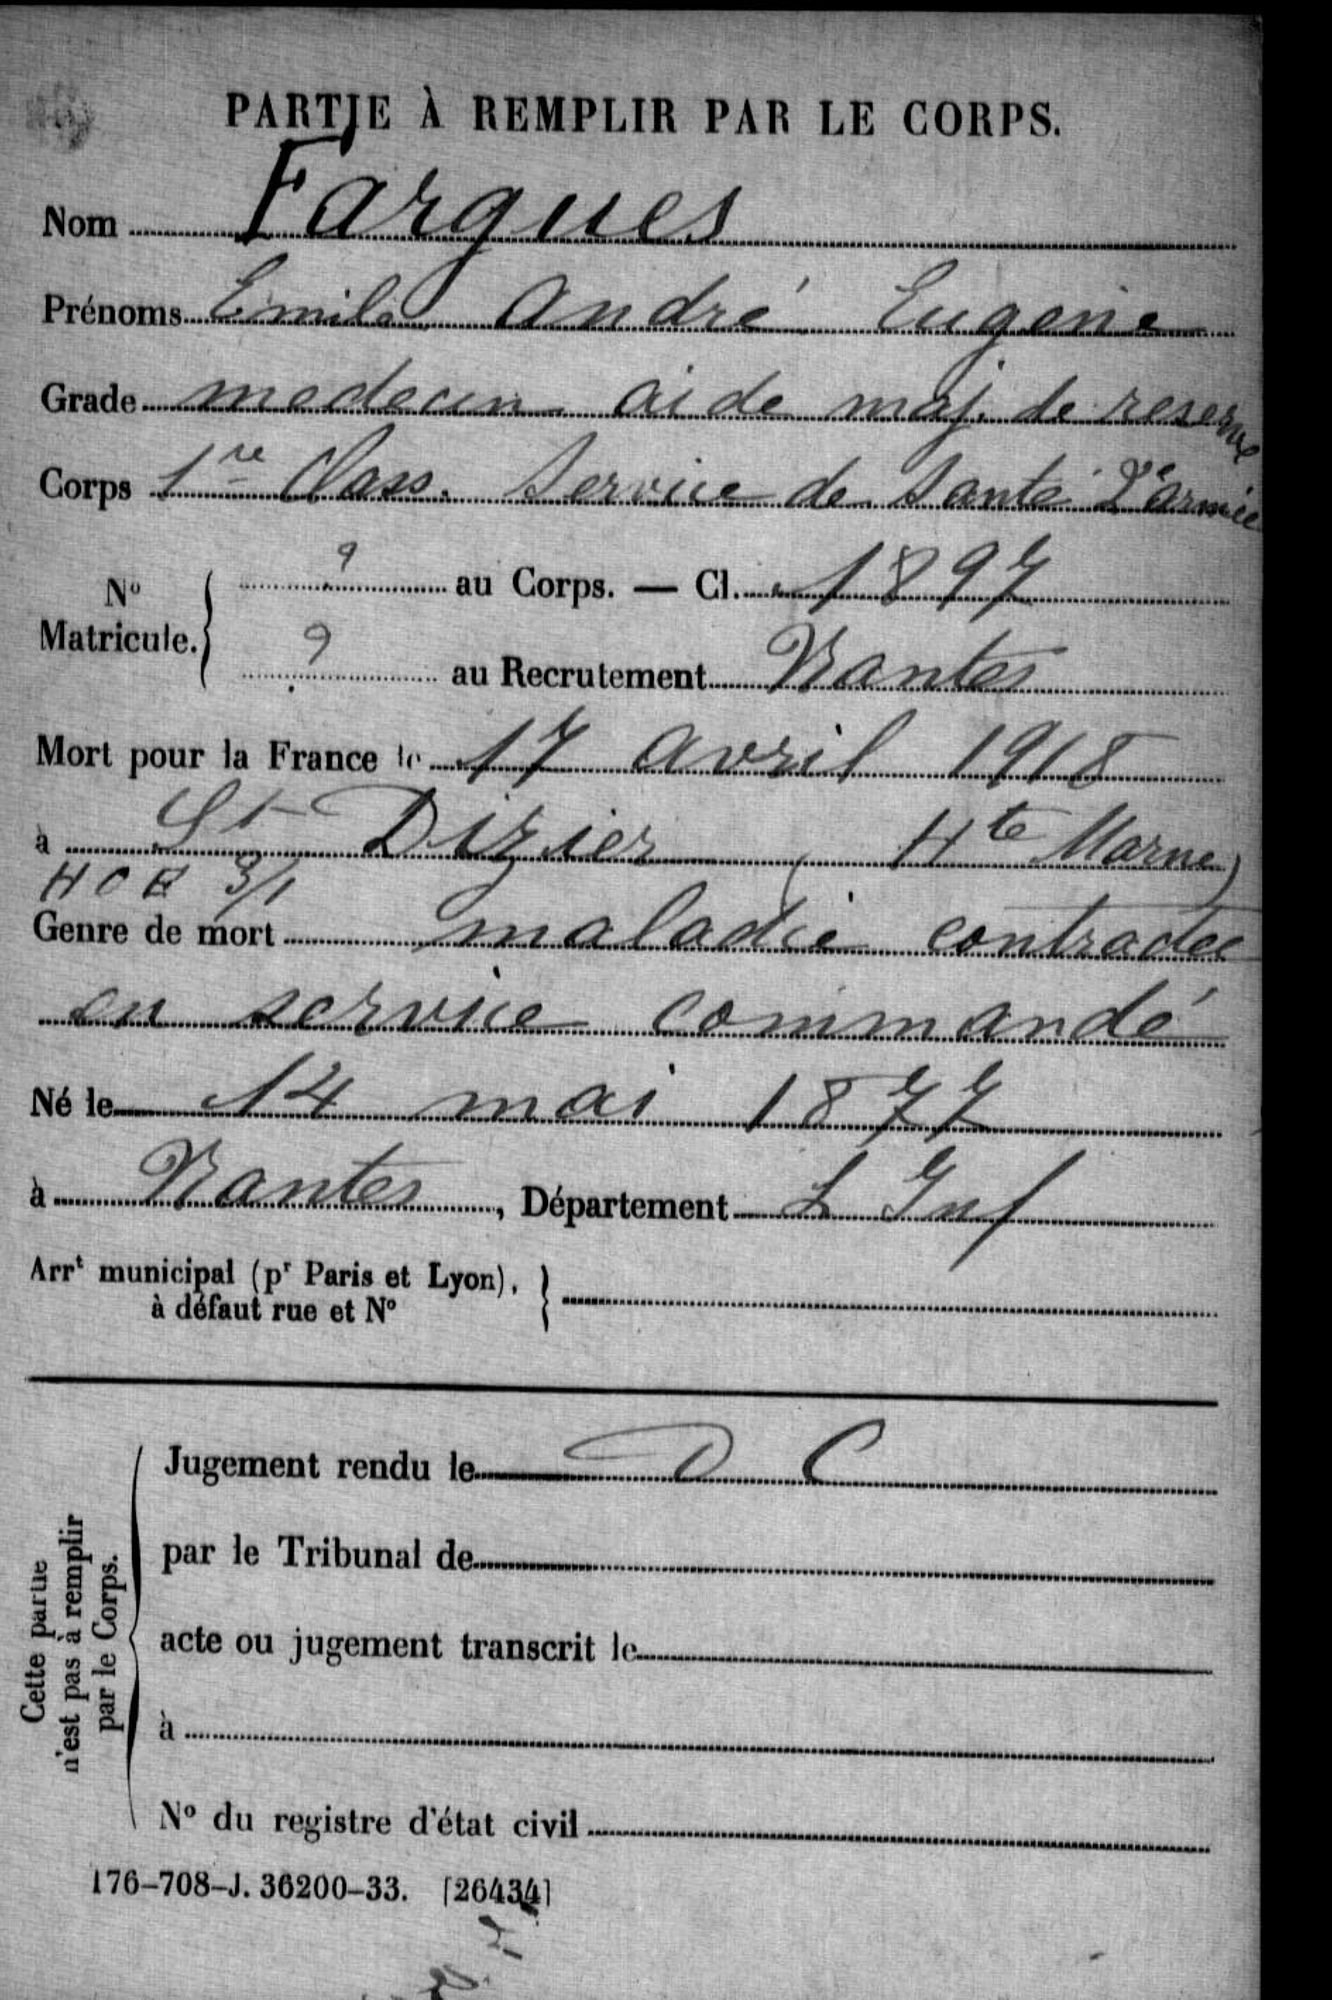 PARTIE À REMPLIR PAR LE CORPS.
Nom Fargues
Prénoms Emile André Eugène
Grade medecin aide maj. de reserve
Corps 1re Class. Service de Santé 2e armée
No Matricule. { ? au Corps. — Cl. 1897
? au Recrutement Nantes
Mort pour la France le 17 avril 1918
à St Dizier (Hte Marne)
HOE 3/1
Genre de mort maladie contractée
en service commandé
Né le 14 mai 1877
à Nantes, Département L Inf
Arrt municipal (pr Paris et Lyon), }
à défaut rue et No
Cette partie
n'est pas à remplir
par le Corps.
Jugement rendu le D C
par le Tribunal de
acte ou jugement transcrit le
à
No du registre d'état civil
176-708-J. 36200-33. [26434]